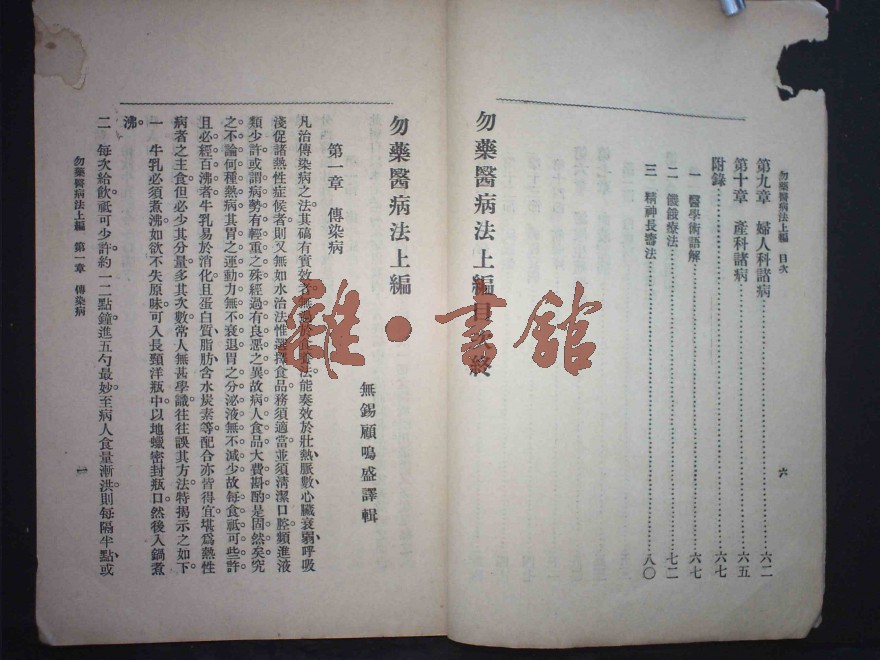 勿藥醫病法上編　目次
第九章　婦人科諸病……六二
第十章　產科諸病……六五
附錄……六七
一　醫學術語解……六七
二　饑餓療法……七二
三　精神長壽法……八〇
六
勿藥醫病法上編目次終
雜·書館
勿藥醫病法上編
無錫顧鳴盛譯輯
第一章　傳染病
凡治傳染病之法其碻有實效者無過於食養法能奏效於壯熱脈數心臟衰弱呼吸
淺促諸熱性症候者則又無如水治法惟選擇食品務須適當並須清潔口腔頻進液
類少許或謂病勢有輕重之殊經過有良惡之異故病人食品大費斟酌是固然矣究
之不論何種熱病其胃之運動力無不衰退胃之分泌液無不減少故每食祗可些許
且必經百沸者牛乳易於消化且蛋白質脂肪含水炭素等配合亦皆得宜堪爲熱性
病者之主食但必少其分量多其次數常人無甚學識往往誤其方法特揭示之如下
一　牛乳必須煮沸如欲不失原味可入長頸洋瓶中以地蠟密封瓶口然後入鍋煮
沸
二　每次給飲祗可少許約一二點鐘進五勺最妙至病人食量漸洪則每隔半點或
勿藥醫病法上編　第一章　傳染病
一